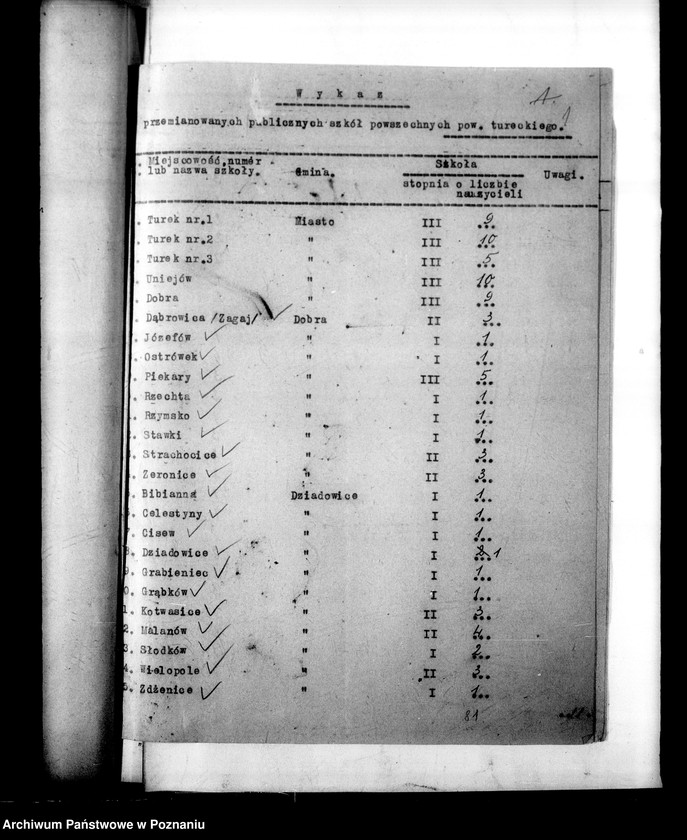 Wykaz
1.
przemianowanych publicznych szkół powszechnych pow. tureckiego.
Miejscowość, numér lub nazwa szkoły. Gmina. Szkoła stopnia o liczbie nauczycieli Uwagi.
. Turek nr.1 Miasto III 9
. Turek nr.2 " III 10
. Turek nr.3 " III 5
. Uniejów " III 10
. Dobra " III 9
. Dąbrowica /Zagaj/ Dobra II 3
. Józefów " I 1
. Ostrówek " I 1
. Piekary " III 5
. Rzechta " I 1
. Rzymsko " I 1
. Stawki " I 1
. Strachocice " II 3
. Zeronice " II 3
. Bibianna Dziadowice I 1
. Celestyny " I 1
7. Cisew " I 1
8. Dziadowice " I 2 1
9. Grabieniec " I 1
0. Grąbków " I 1
1. Kotwasice " II 3
2. Malanów " II 4
3. Słodków " I 2
4. Wielopole " II 3
5. Zdżenice " I 1
81
Archiwum Państwowe w Poznaniu